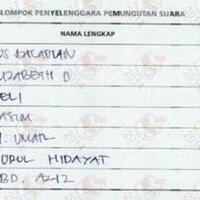 ELOMPOK PENYELENGGARA PEMUNGUTAN SUARA
NAMA LENGKAP
IZABETH D
ELI
. UMAR
URUL HIDAYAT
BD. AZIZ